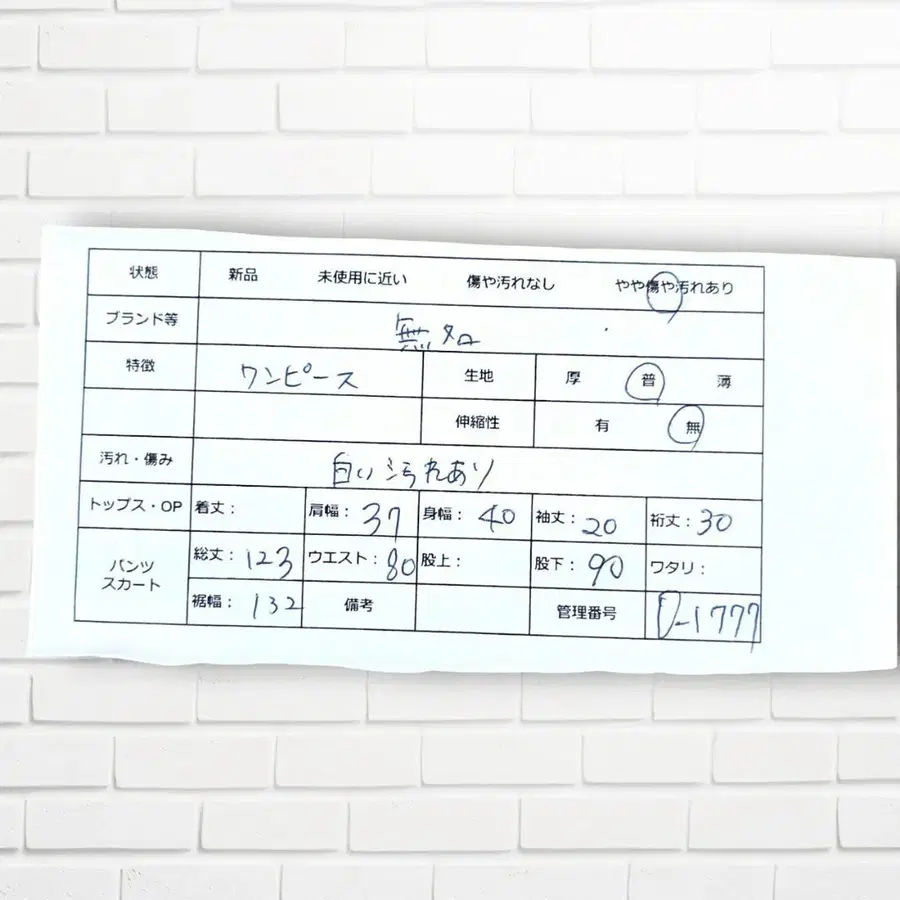 状態 新品 未使用に近い 傷や汚れなし やや傷や汚れあり
ブランド等 無名
特徴 ワンピース 生地 厚 普 薄
伸縮性 有 無
汚れ・傷み 白い汚れあり
トップス・OP 着丈： 肩幅：37 身幅：40 袖丈：20 裄丈：30
パンツ スカート 総丈：123 ウエスト：80 股上： 股下：90 ワタリ：
裾幅：132 備考 管理番号 D-1777